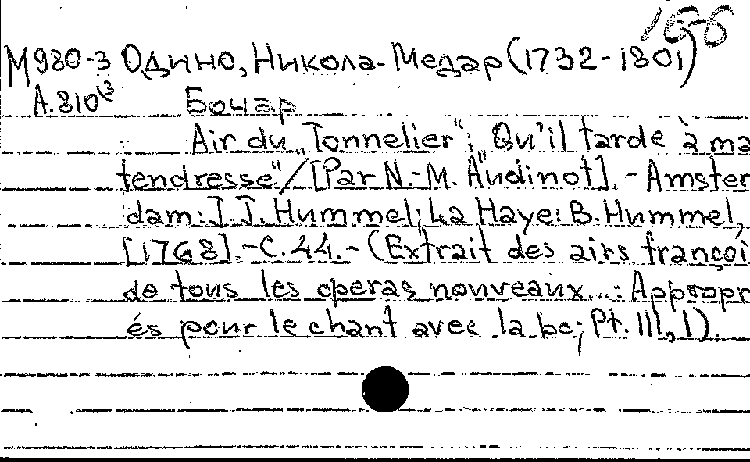 166
М980-3 Одино, Никола-Медар (1732-1801)
А.810/3 Бочар
Air du „Tonnelier“: „Qu'il tarde à ma
tendresse“/[Par N.-M. Audinot].-Amster
dam: J.J. Hummel; La Haye: B. Hummel,
[1768].-C.44.-(Extrait des airs françoi
de tous les operas nouveaux...: Appropr
és pour le chant avec la bc; Pt. III, 1).